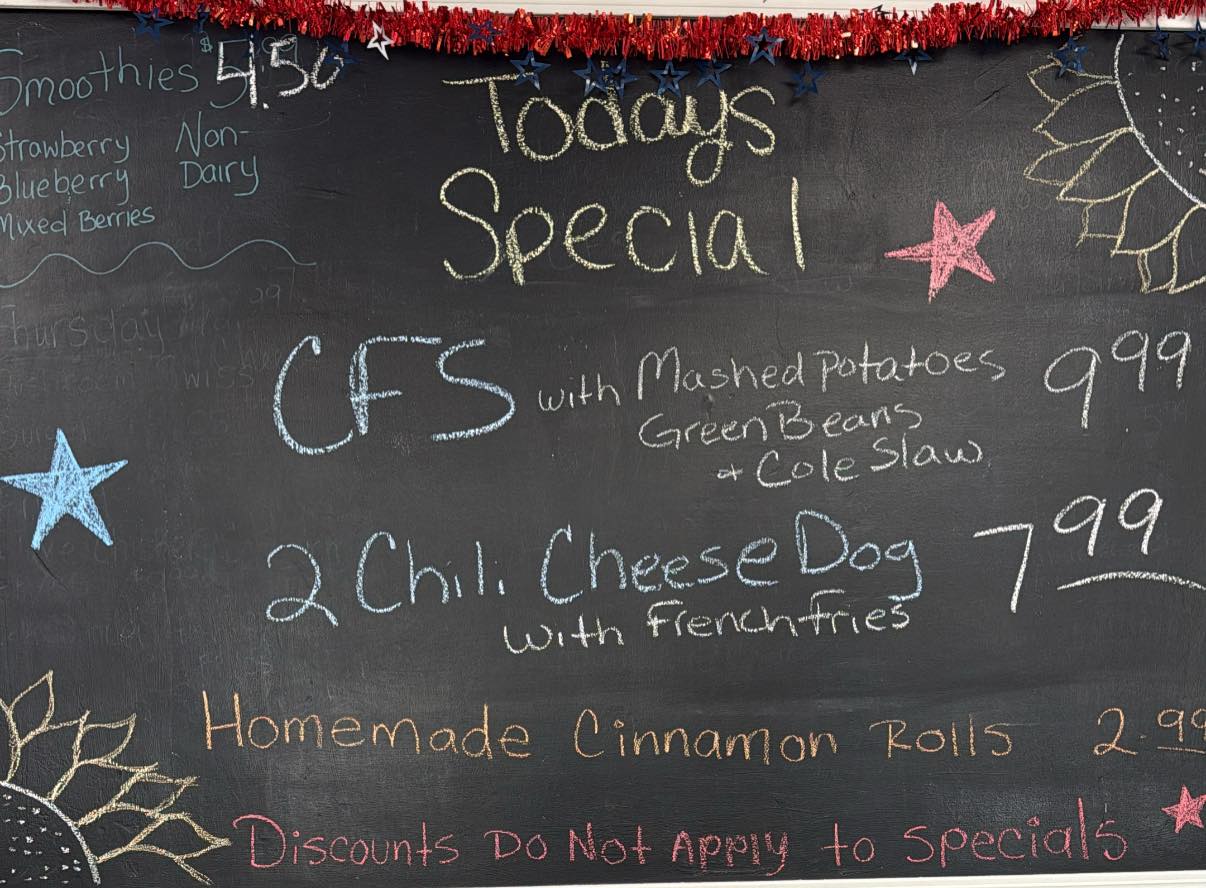 Smoothies $ 4.50
Strawberry Non-
Blueberry Dairy
Mixed Berries
Todays
Special
CFS with Mashed Potatoes 9 99
Green Beans
+ Cole Slaw
2 Chili Cheese Dog 7 99
with French fries
Homemade Cinnamon Rolls 2.99
Discounts Do Not Apply to specials
Thursday